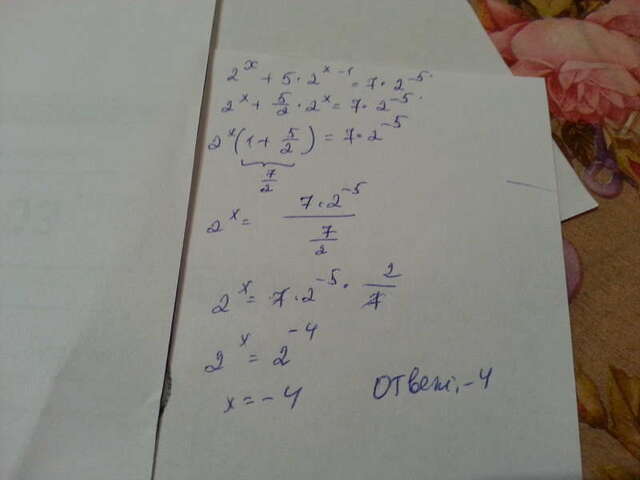 2^x + 5 · 2^(x-1) = 7 · 2^(-5).
2^x + 5/2 · 2^x = 7 · 2^(-5).
2^x (1 + 5/2) = 7 · 2^(-5)
7/2
2^x = (7 · 2^(-5)) / (7/2)
2^x = 7 · 2^(-5) · 2/7
2^x = 2^(-4)
x = -4
Ответ: -4